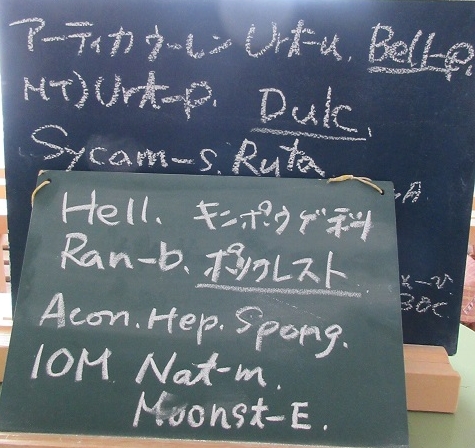 アーティカ ウーレン Urt-u. Bell-p
MT) Urt-p. Dulc.
Sycam-s. Ruta
Hell. キンポウゲ
Ran-b. ポリクレスト
Acon. Hep. Spong.
10M Nat-m.
Moonst-E.